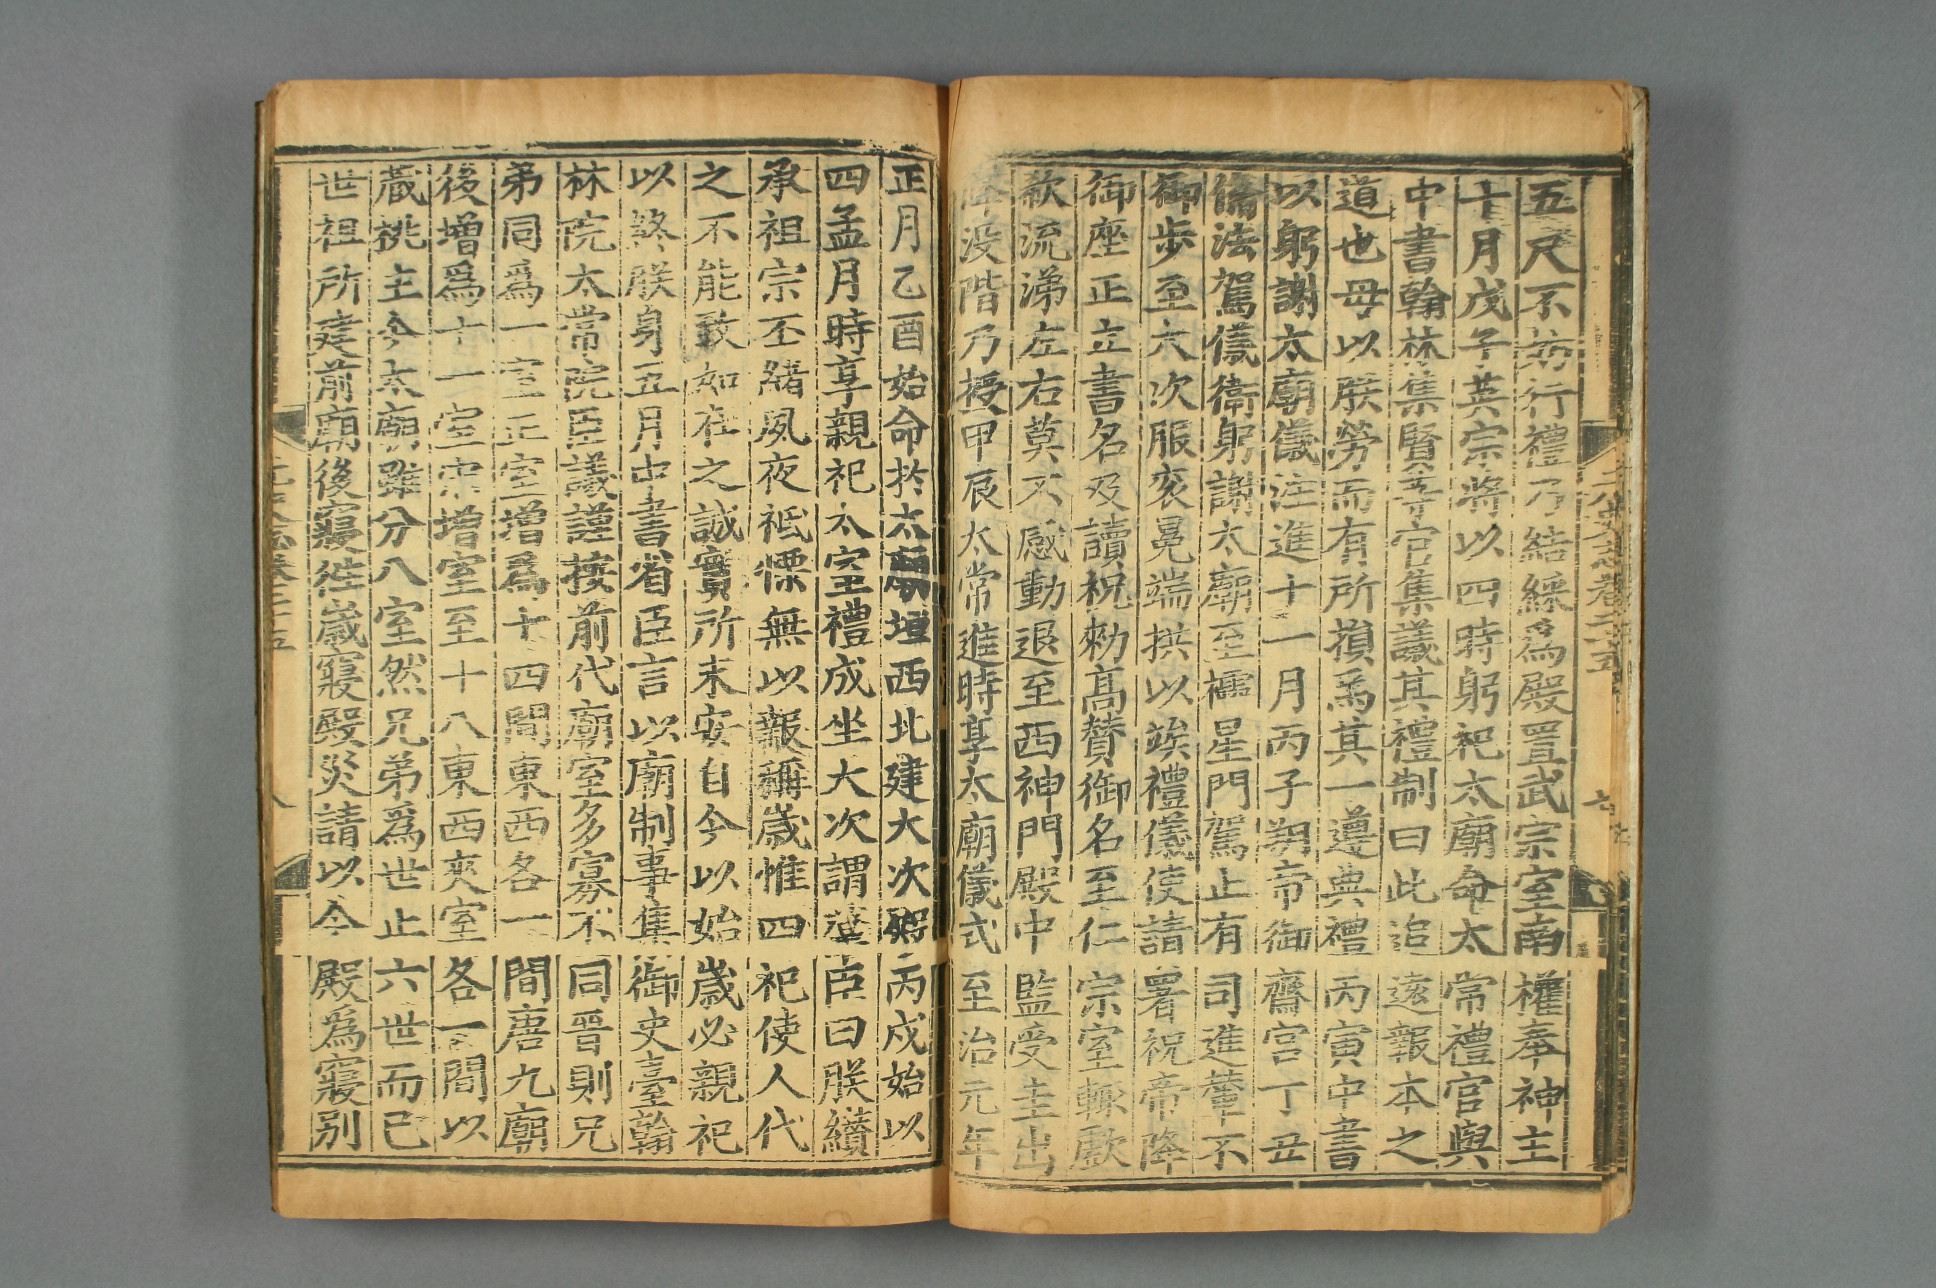 五尺不所行禮乃結綵爲殿置武宗室南權奉神主
十月戊子英宗將以四時躬祀太廟命太常禮官與
中書翰林集賢等官集議其禮制曰此追遠報本之
道也毋以朕勞而有所損焉其一遵典禮丙寅中書
以躬謝太廟儀注進十一月丙子朔帝御齋宮丁丑
備法駕儀衛躬謝太廟至櫺星門駕止有司進輦不
御步至大次服衮冕端拱以竢禮儀使請署祝帝降
御座正立書名及讀祝勑高贊御名至仁宗室輒歔
欷流涕左右莫不感動退至西神門殿中監受圭出
降没階乃授甲辰太常進時享太廟儀式至治元年
正月乙酉始命於太廟垣西北建大次殿丙戌始以
四孟月時享親祀太室禮成坐大次謂羣臣曰朕纘
承祖宗丕緒夙夜祗慄無以報稱歲惟四祀使人代
之不能致如在之誠實所未安自今以始歲必親祀
以終朕身五月中書省臣言以廟制事集御史臺翰
林院太常院臣議謹按前代廟室多寡不同晋則兄
弟同爲一室正室增爲十四間東西各一間唐九廟
後增爲十一室宋增室至十八東西夾室各一間以
藏祧主今太廟雖分八室然兄弟爲世止六世而已
世祖所建前廟後寢徃歲寢殿災請以今殿爲寢别
元史志卷二十五
八